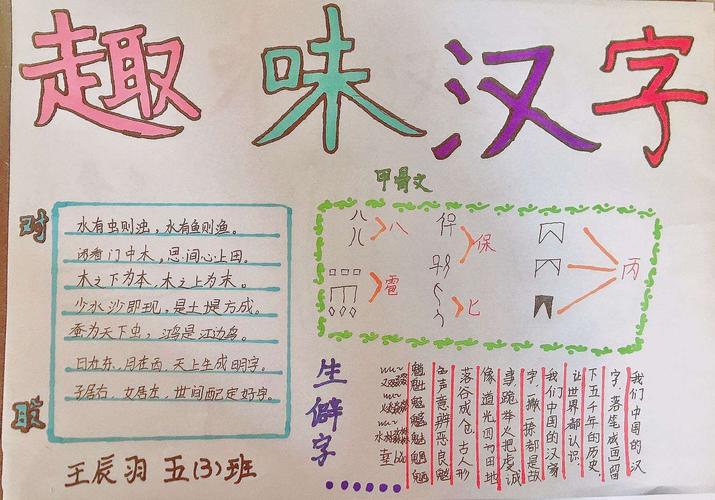 趣味汉字
甲骨文
对
联
水有虫则浊，水有鱼则渔。
闲看门中木，思间心上田。
木之下为本，木之上为末。
少水沙即现，是土堤方成。
蚕为天下虫，鸿是江边鸟。
日在东，月在西，天上生成明字。
子居右，女居左，世间配定好字。
王辰羽 五(3)班
八
雹
保
匕
丙
生僻字
我们中国的汉
字，落笔成画留
下五千年的历史，
让世界都认识
我们中国的汉家
字，一撇一捺都是故
事跪举火把虔诚
像道光四方田地
落谷成仓 古人形
色声意辨恶良魑
魅魍魉魑魅魍魉